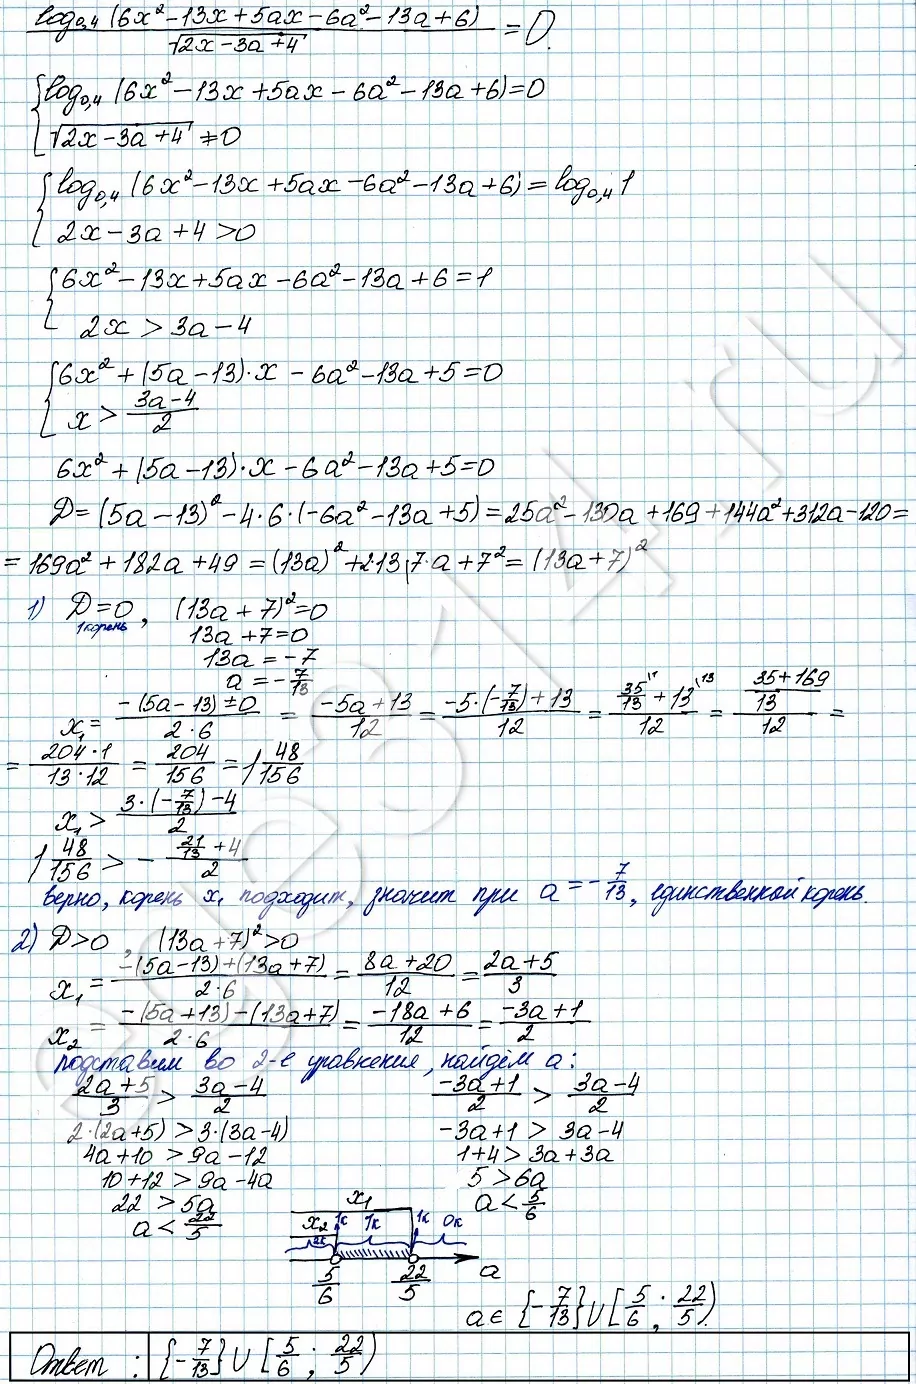 log₀,₄ (6x² – 13x + 5ax – 6a² – 13a + 6) / √(2x – 3a + 4) = 0.
{ log₀,₄ (6x² – 13x + 5ax – 6a² – 13a + 6) = 0
√(2x – 3a + 4) ≠ 0
{ log₀,₄ (6x² – 13x + 5ax – 6a² – 13a + 6) = log₀,₄ 1
2x – 3a + 4 > 0
{ 6x² – 13x + 5ax – 6a² – 13a + 6 = 1
2x > 3a – 4
{ 6x² + (5a – 13)·x – 6a² – 13a + 5 = 0
x > (3a – 4)/2
6x² + (5a – 13)·x – 6a² – 13a + 5 = 0
Д = (5a – 13)² – 4·6·(–6a² – 13a + 5) = 25a² – 130a + 169 + 144a² + 312a – 120 =
= 169a² + 182a + 49 = (13a)² + 2·13·7·a + 7² = (13a + 7)²
1) Д = 0, (13a + 7)² = 0
1 корень
13a + 7 = 0
13a = –7
a = –7/13
x₁ = (–(5a – 13) ± 0)/(2·6) = (–5a + 13)/12 = (–5·(–7/13) + 13)/12 = (35/13 + 13)/12 = ((35 + 169)/13)/12 =
= (204·1)/(13·12) = 204/156 = 1 48/156
x₁ > (3·(–7/13) – 4)/2
1 48/156 > –(21/13 + 4)/2
верно, корень x₁ подходит, значит при a = –7/13, единственной корень.
2) Д > 0, (13a + 7)² > 0
x₁ = (–(5a – 13) + (13a + 7))/(2·6) = (8a + 20)/12 = (2a + 5)/3
x₂ = (–(5a + 13) – (13a + 7))/(2·6) = (–18a + 6)/12 = (–3a + 1)/2
подставим во 2-е уравнения, найдём a:
(2a + 5)/3 > (3a – 4)/2
2·(2a + 5) > 3·(3a – 4)
4a + 10 > 9a – 12
10 + 12 > 9a – 4a
22 > 5a
a < 22/5
(–3a + 1)/2 > (3a – 4)/2
–3a + 1 > 3a – 4
1 + 4 > 3a + 3a
5 > 6a
a < 5/6
x₁
x₂ 1к 1к 1к 0к
2к
5/6 22/5 a
a ∈ {–7/13} ∪ [5/6; 22/5).
Ответ: {–7/13} ∪ [5/6; 22/5)